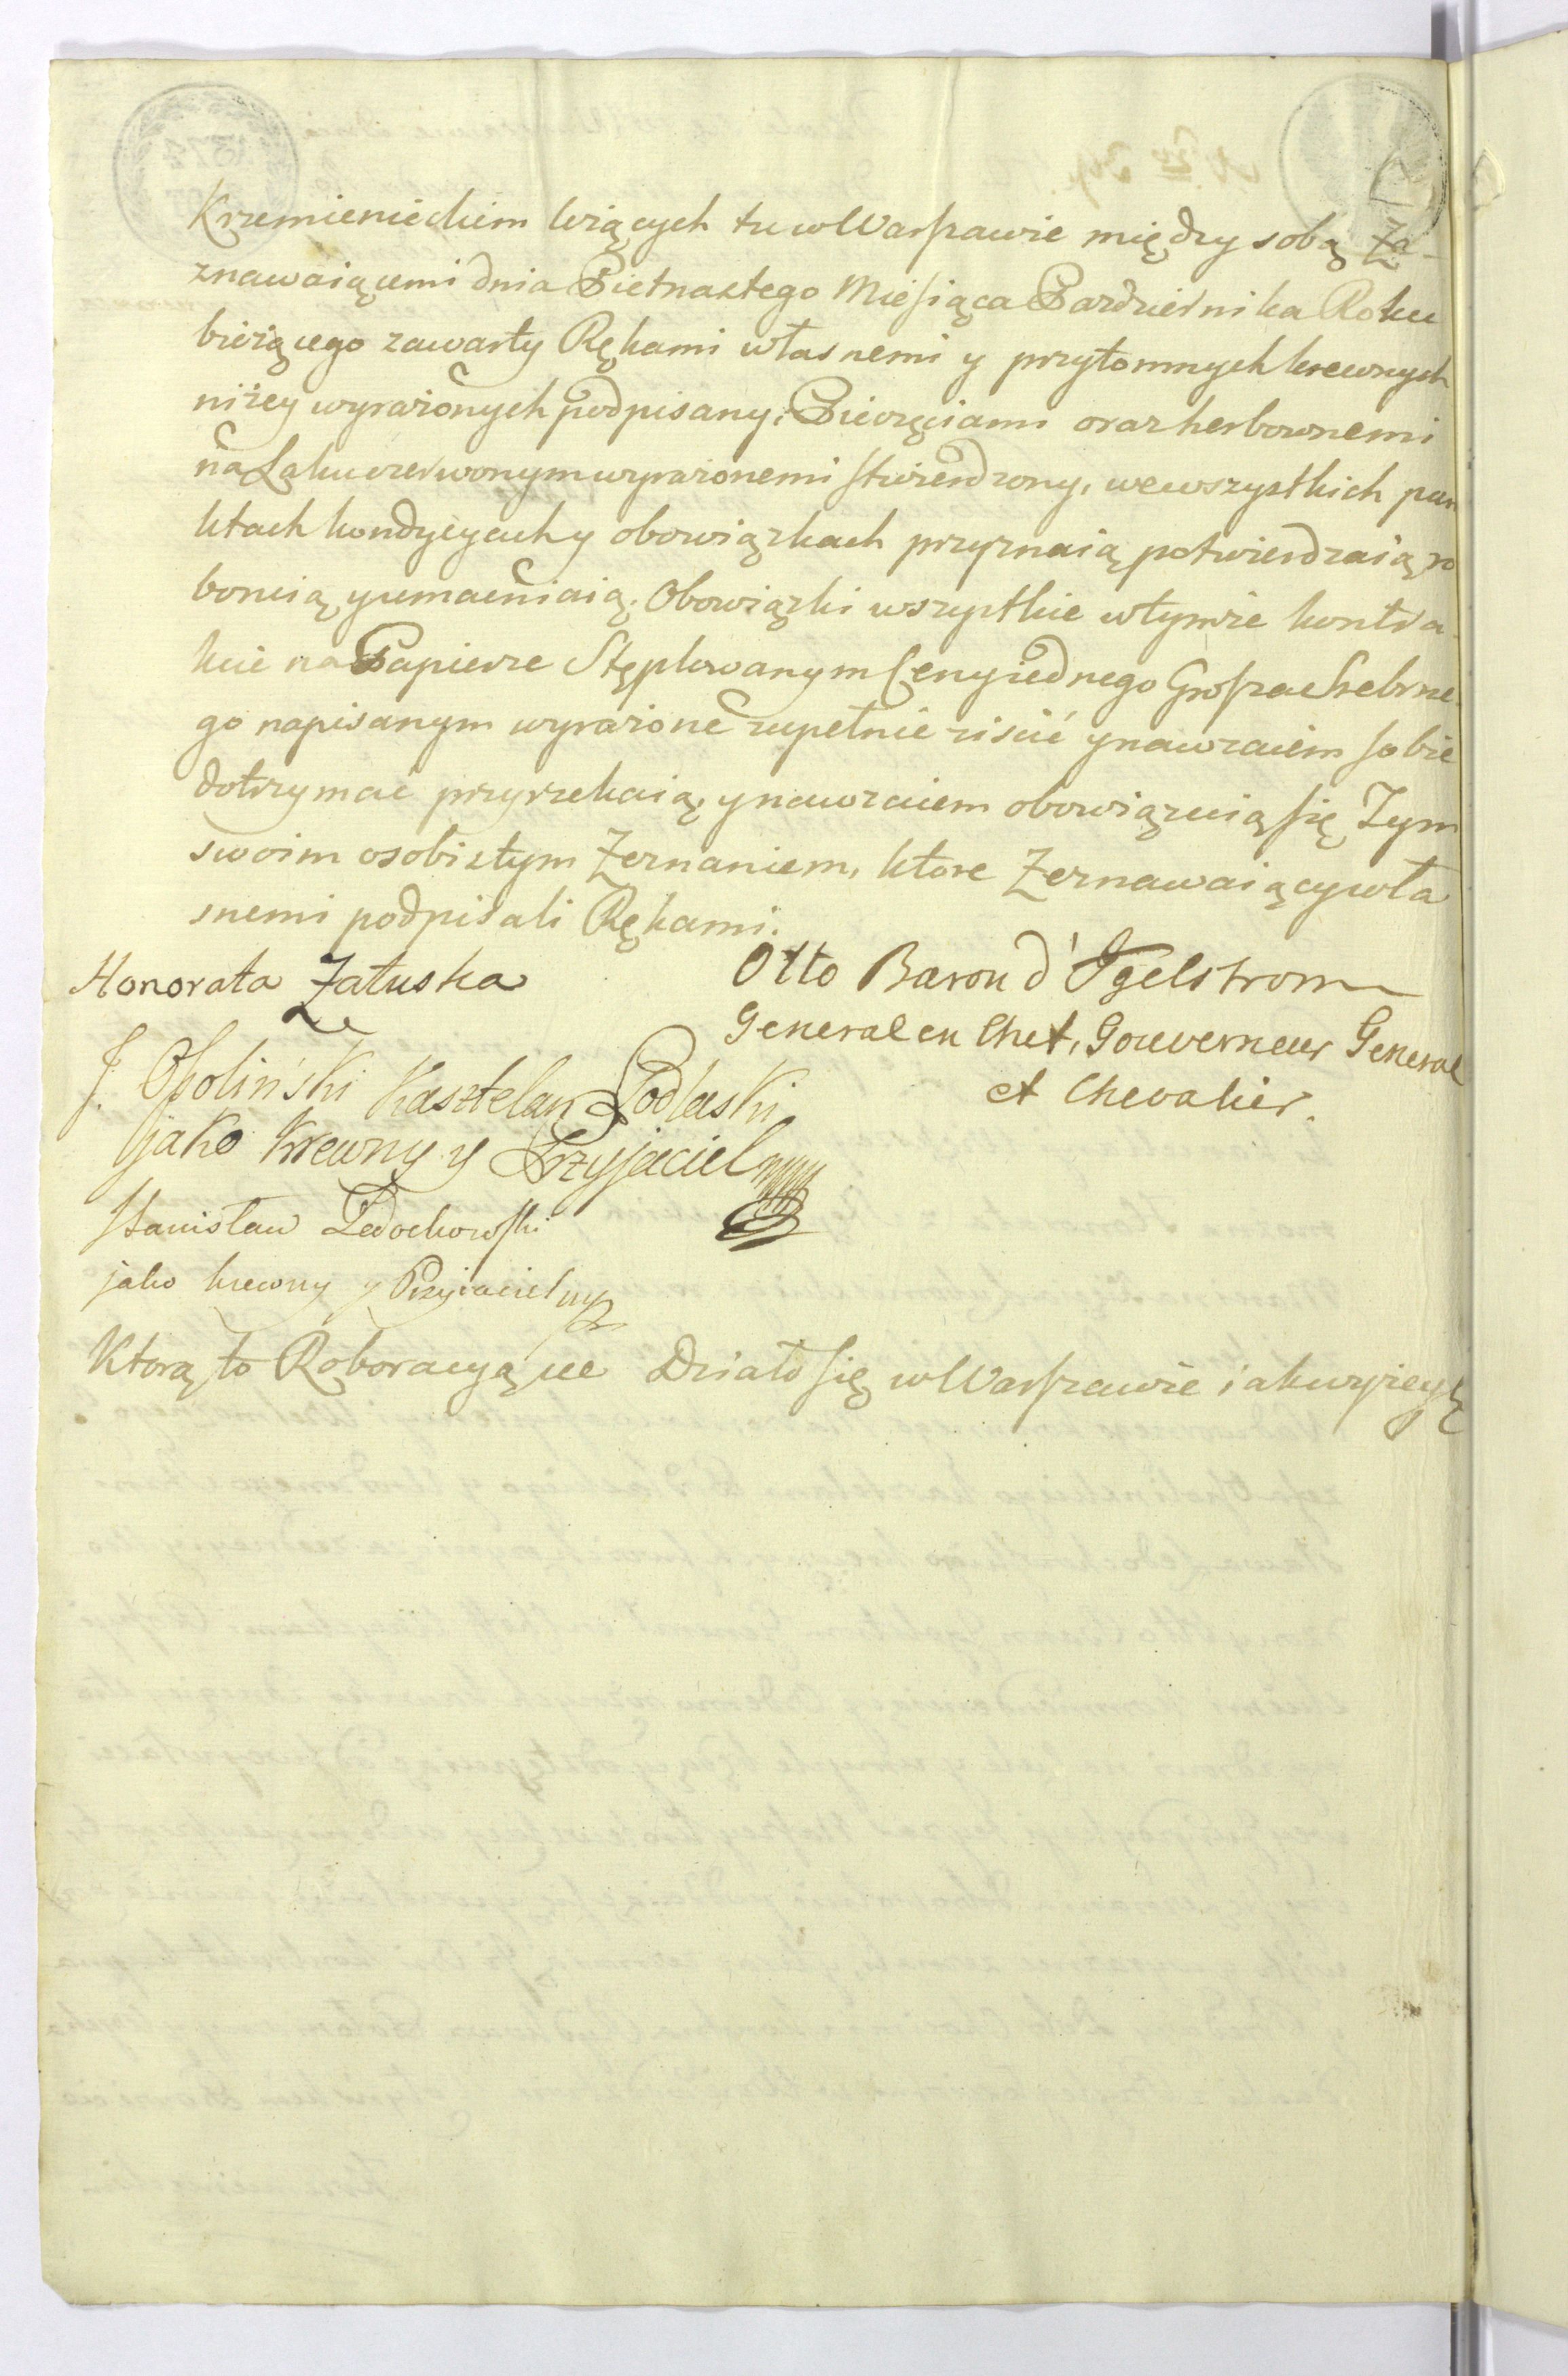 Krzemienieckim leżących tu w Warszawie między sobą Ze-
znawaiącemi dnia Pietnastego Miesiąca Pazdziernika Roku
bieżącego zawarty Rękami własnemi y przytomnych krewnych
niżey wyrażonych podpisany, Pieczęciami oraz herbownemi
na Laku czerwonym wyrażonemi stwierdzony, we wszystkich pun
ktach kondycyach y obowiązkach przyznaią, potwierdzaią, ro
boruią, y umacniaią. Obowiązki wszystkie w tymże kontra-
kcie na Papierze Stęplowanym Ceny iednego Grosza Srebrne-
go napisanym wyrażone zupełnie ziścić y nawzaiem sobie
dotrzymać przyrzekaią, y nawzaiem obowiązuią się Tym
swoim osobistym Zeznaniem, ktore Zeznawaiący wła
snemi podpisali Rękami.
Honorata Załuska
Otto Baron d'Igelstrom
General en Chef, Gouverneur General
et Chevalier.
J. Opoliński Kasztelan Podlaski
jako Krewny y Przyjaciel mpp
Stanisław Ledochowski
jako krewny y Przyiaciel mpp
Ktorą to Roboracyą ie Działo się w Warszawie iak wyżey